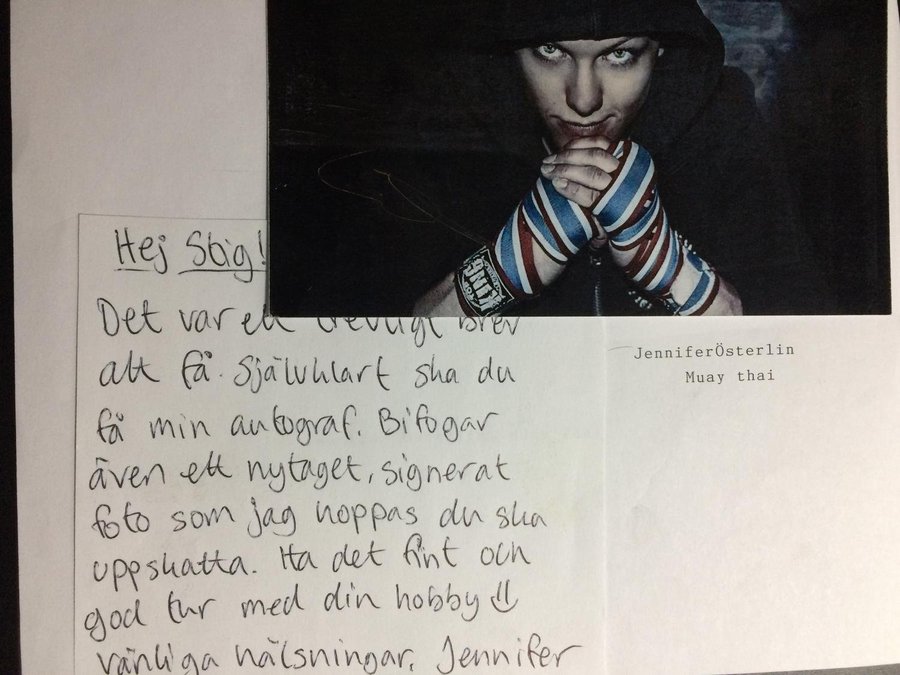 Hej Stig!
Det var ett trevligt brev
att få. Självklart ska du
få min autograf. Bifogar
även ett nytaget, signerat
foto som jag hoppas du ska
uppskatta. Ha det fint och
god tur med din hobby
vänliga hälsningar, Jennifer
KING
JenniferÖsterlin
Muay thai